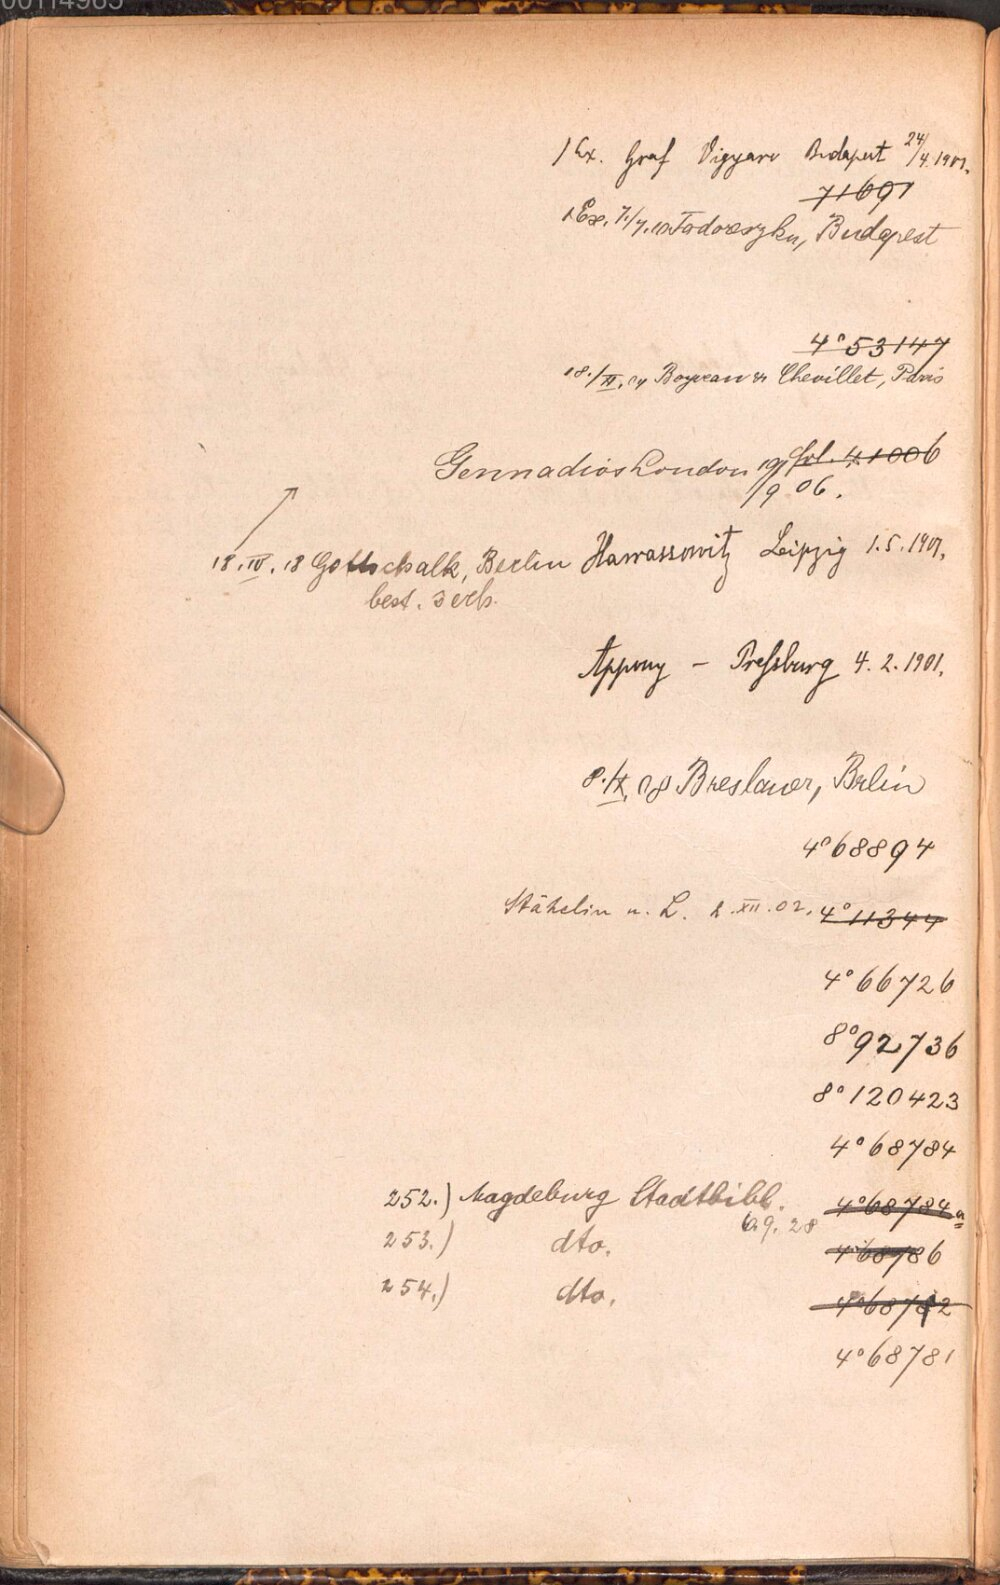 00114985
1 Ex. Graf Vigyazo Budapest 24/4. 1901.
71691
1 Ex. 7./7. 10 Todoreszku, Budapest
4° 53147
18./XI. 04 Boyveau & Chevillet, Paris
Gennadios London 19/9 06. fol. 41006
18. IV. 18 Gottschalk, Berlin Harrassowitz Leipzig 1.5.1901.
best. 3 erh.
Appony – Pressburg 4. 2. 1901.
8./IX. 08 Breslauer, Berlin
4° 68894
Stähelin u. L. 2. XII. 02. 4° 11344
4° 66726
8° 92736
8° 120423
4° 68784
252.) Magdeburg Stadtbibl. 4° 68784 a
6.9.28
253.) dto. 4° 68786
254.) dto. 4° 68782
4° 68781